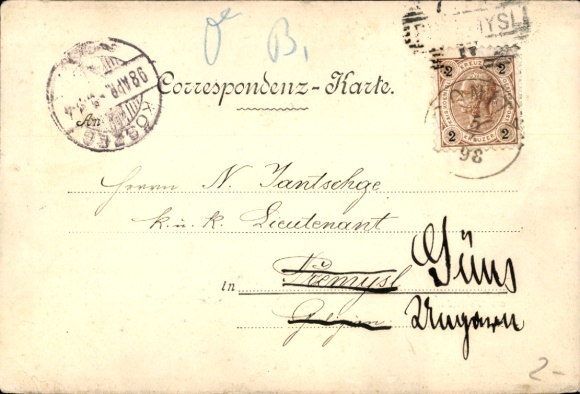 B.
MYSL
Correspondenz-Karte.
KREUZER
2 2
2 2
98 APR.
KŐSZEG
5
98
An
Herrn N. Jantschge
k. u. k. Lieutenant
in Přemysl Güns
Galizien Ungarn
2-